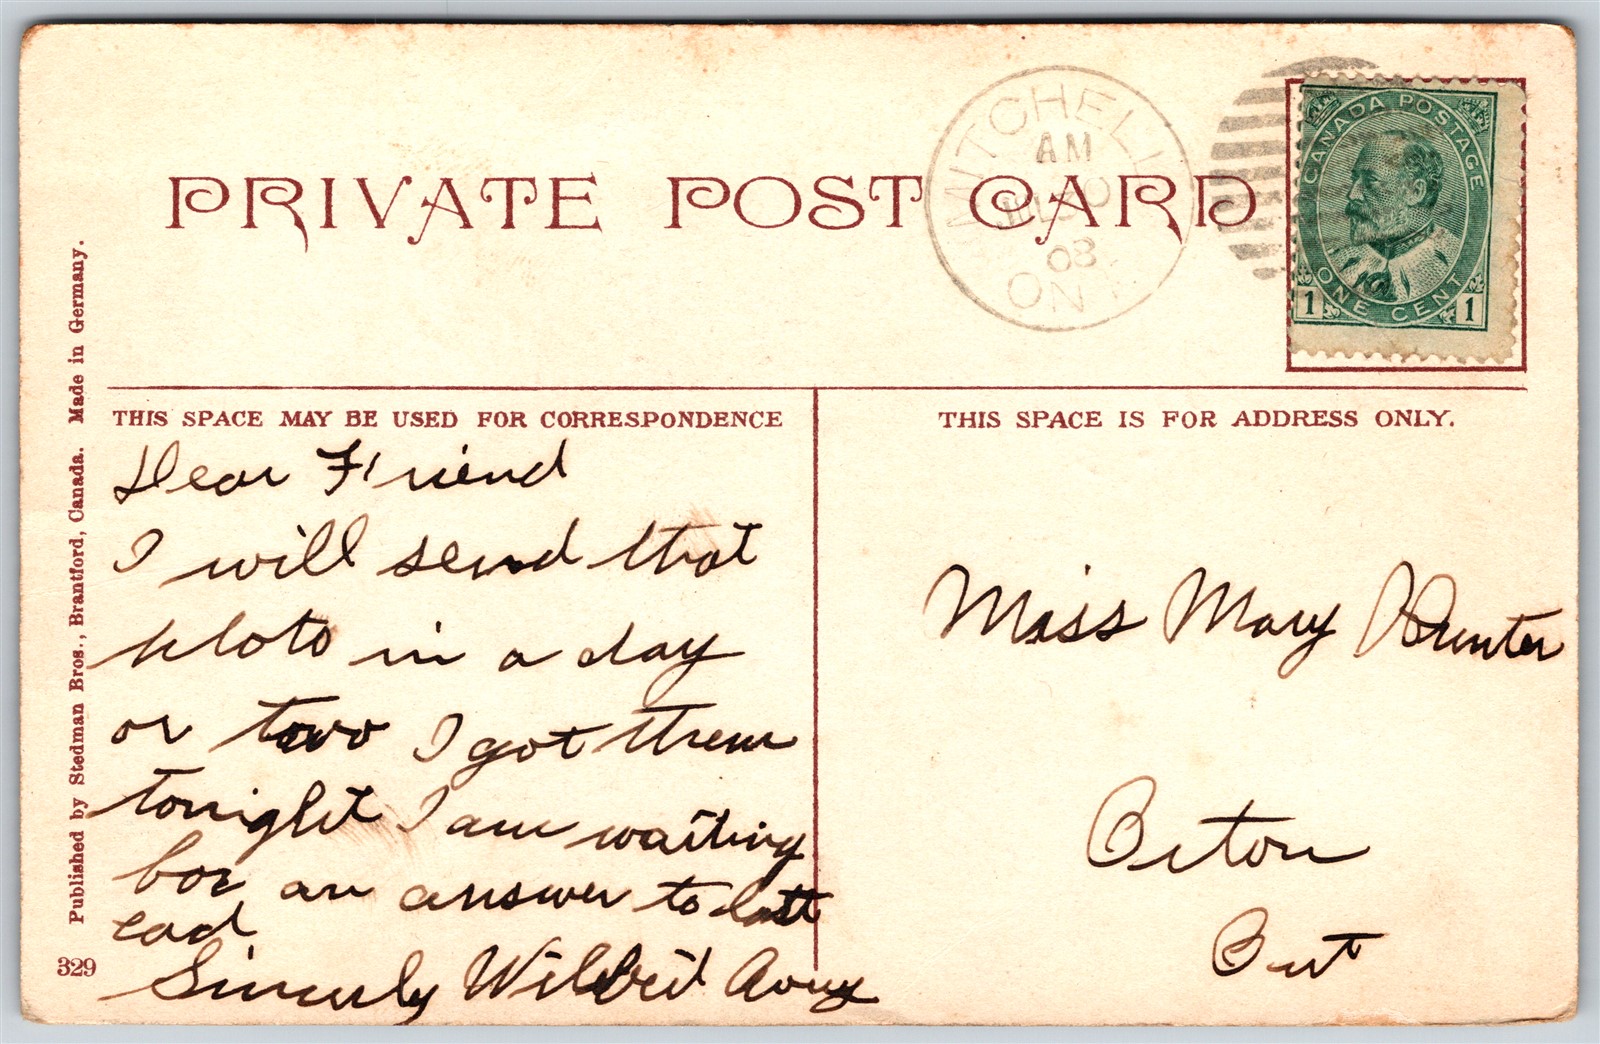 PRIVATE POST CARD
MITCHELL
AM
JUL 30
08
ONT
CANADA POSTAGE
ONE CENT
1 1
Published by Stedman Bros., Brantford, Canada. Made in Germany.
329
THIS SPACE MAY BE USED FOR CORRESPONDENCE
Dear Friend
I will send that
photo in a day
or two I got them
tonight I am waiting
for an answer to last
card
Sincerly Wilbert Avery
THIS SPACE IS FOR ADDRESS ONLY.
Miss Mary Hunter
Orton
Ont